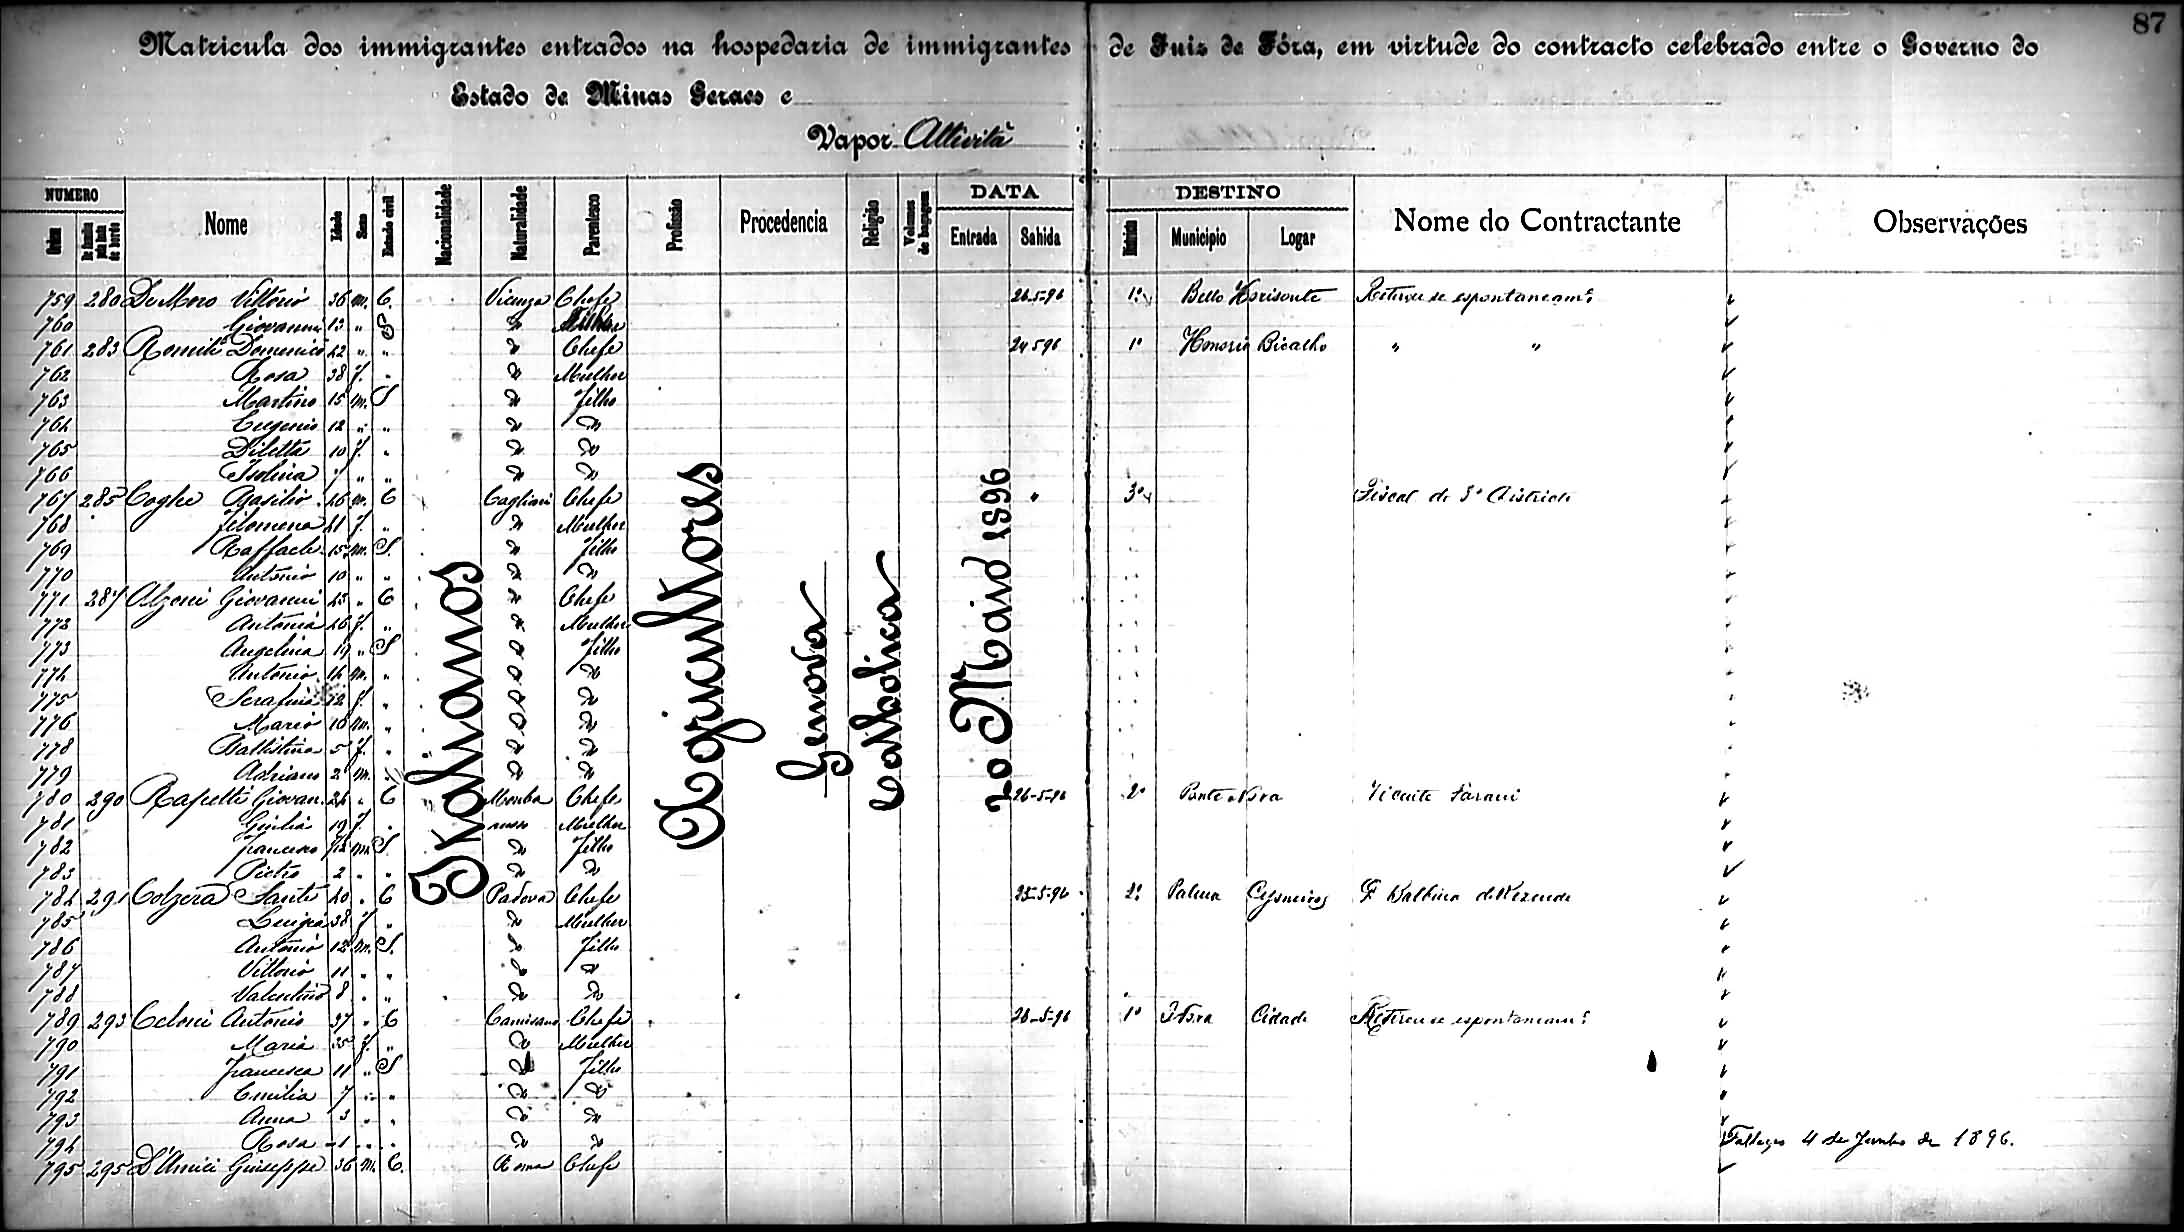 87
Matricula dos immigrantes entrados na hospedaria de immigrantes de Juiz de Fóra, em virtude do contracto celebrado entre o Governo do
Estado de Minas Geraes e
Vapor Attività
NUMERO Nome Idade Sexo Estado civil Nacionalidade Naturalidade Parentesco Profissão Procedencia Religião Volumes de bagagem DATA DESTINO Nome do Contractante Observações
Ordem Entrada Sahida Districto Municipio Logar
Italianos
Agricultores
Genova
Catholica
20 Maio 1896
759 280 De Moro Vittorio 36 m. C. Vicenza Chefe 26-5-96 1º Bello Horisonte Retirou se espontaneamᵉ
760 Giovanni 13 " S " Filho
761 283 Domenico 42 " " " Chefe 24 5 96 1º Honorio Bicalho " "
762 Rosa 38 f. " " Mulher
763 Martino 15 m. S " Filho
764 Eugenio 12 " " " "
765 Diletta 10 f. " " "
766 Isolina " " " "
767 285 Coghe Basilio 46 m. C Cagliari Chefe " 3º Fiscal do 3º Districto
768 Filomena 41 f. " " Mulher
769 Raffaele 15 m. S. " Filho
770 Antonio 10 " " " "
771 287 Alzeni Giovanni 45 " C " Chefe
772 Antonia 46 f. " " Mulher
773 Angelina 19 " S " Filho
774 Antonio 14 m. " " "
775 Serafina 12 f. " " "
776 Mario 10 m. " " "
778 Battistina 5 f. " " "
779 Adriano 2 m. " " "
780 290 Rapetti Giovan. 26 " C Chefe 26-5-96 2º Ponte Nova Vicente
781 Giulia 19 f. " Mulher
782 Francesco m. S. " Filho
783 Pietro 2 " " " "
784 291 Colzera Sante 40 " C Padova Chefe 25-5-96 2º Palma Cysneiros F Balbino de Rezende
785 Luigia 38 f " " Mulher
786 Antonio 12 m. S. " Filho
787 Vittorio 11 " " " "
788 Valentino 8 " " " "
789 293 Celoni Antonio 37 " C Camisano Chefe 26-5-96 1º J. Fóra Cidade Retirou se espontaneamᵉ
790 Maria 35 f. " " Mulher
791 Francesca 11 " S " Filho
792 Emilia 7 " " " "
793 Anna 3 " " " "
794 Rosa 1 " " " " Falleceu 4 de Junho de 1896.
795 295 D'Amici Giuseppe 36 m. C. Roma Chefe